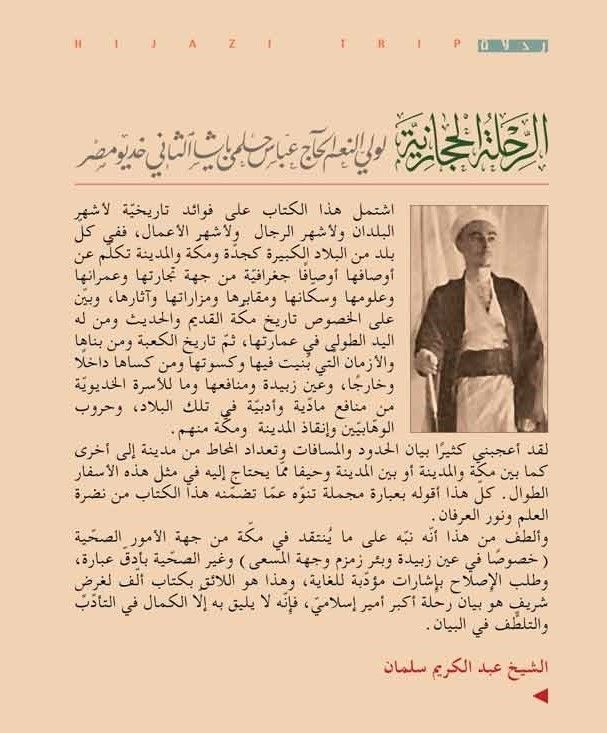 HIJAZI TRIP رحلات
الرحلة الحجازية لولي النعم الحاج عباس حلمي باشا الثاني خديو مصر
اشتمل هذا الكتاب على فوائد تاريخيّة لأشهر
البلدان ولأشهر الرجال ولأشهر الأعمال، ففي كلّ
بلد من البلاد الكبيرة كجدّة ومكة والمدينة تكلّم عن
أوصافها أوصافًا جغرافيّة من جهة تجارتها وعمرانها
وعلومها وسكّانها ومقابرها ومزاراتها وآثارها، وبيّن
على الخصوص تاريخ مكّة القديم والحديث ومن له
اليد الطولى في عمارتها، ثمّ تاريخ الكعبة ومن بناها
والأزمان التي بُنيت فيها وكسوتها ومن كساها داخلًا
وخارجًا، وعين زبيدة ومنافعها وما للأسرة الخديويّة
من منافع مادّية وأدبيّة في تلك البلاد، وحروب
الوهّابيّين وإنقاذ المدينة ومكّة منهم.
لقد أعجبني كثيرًا بيان الحدود والمسافات وتعداد المحاط من مدينة إلى أخرى
كما بين مكّة والمدينة أو بين المدينة وحيفا ممّا يحتاج إليه في مثل هذه الأسفار
الطوال. كلّ هذا أقوله بعبارة مجملة تنوّه عمّا تضمّنه هذا الكتاب من نضرة
العلم ونور العرفان.
وألطف من هذا أنّه نبّه على ما يُنتقد في مكّة من جهة الأمور الصحّية
(خصوصًا في عين زبيدة وبئر زمزم وجهة المسعى) وغير الصحّية بأدقّ عبارة،
وطلب الإصلاح بإشارات مؤدّبة للغاية، وهذا هو اللائق بكتاب ألّف لغرض
شريف هو بيان رحلة أكبر أمير إسلاميّ، فإنّه لا يليق به إلّا الكمال في التأدّب
والتلطّف في البيان.
الشيخ عبد الكريم سلمان